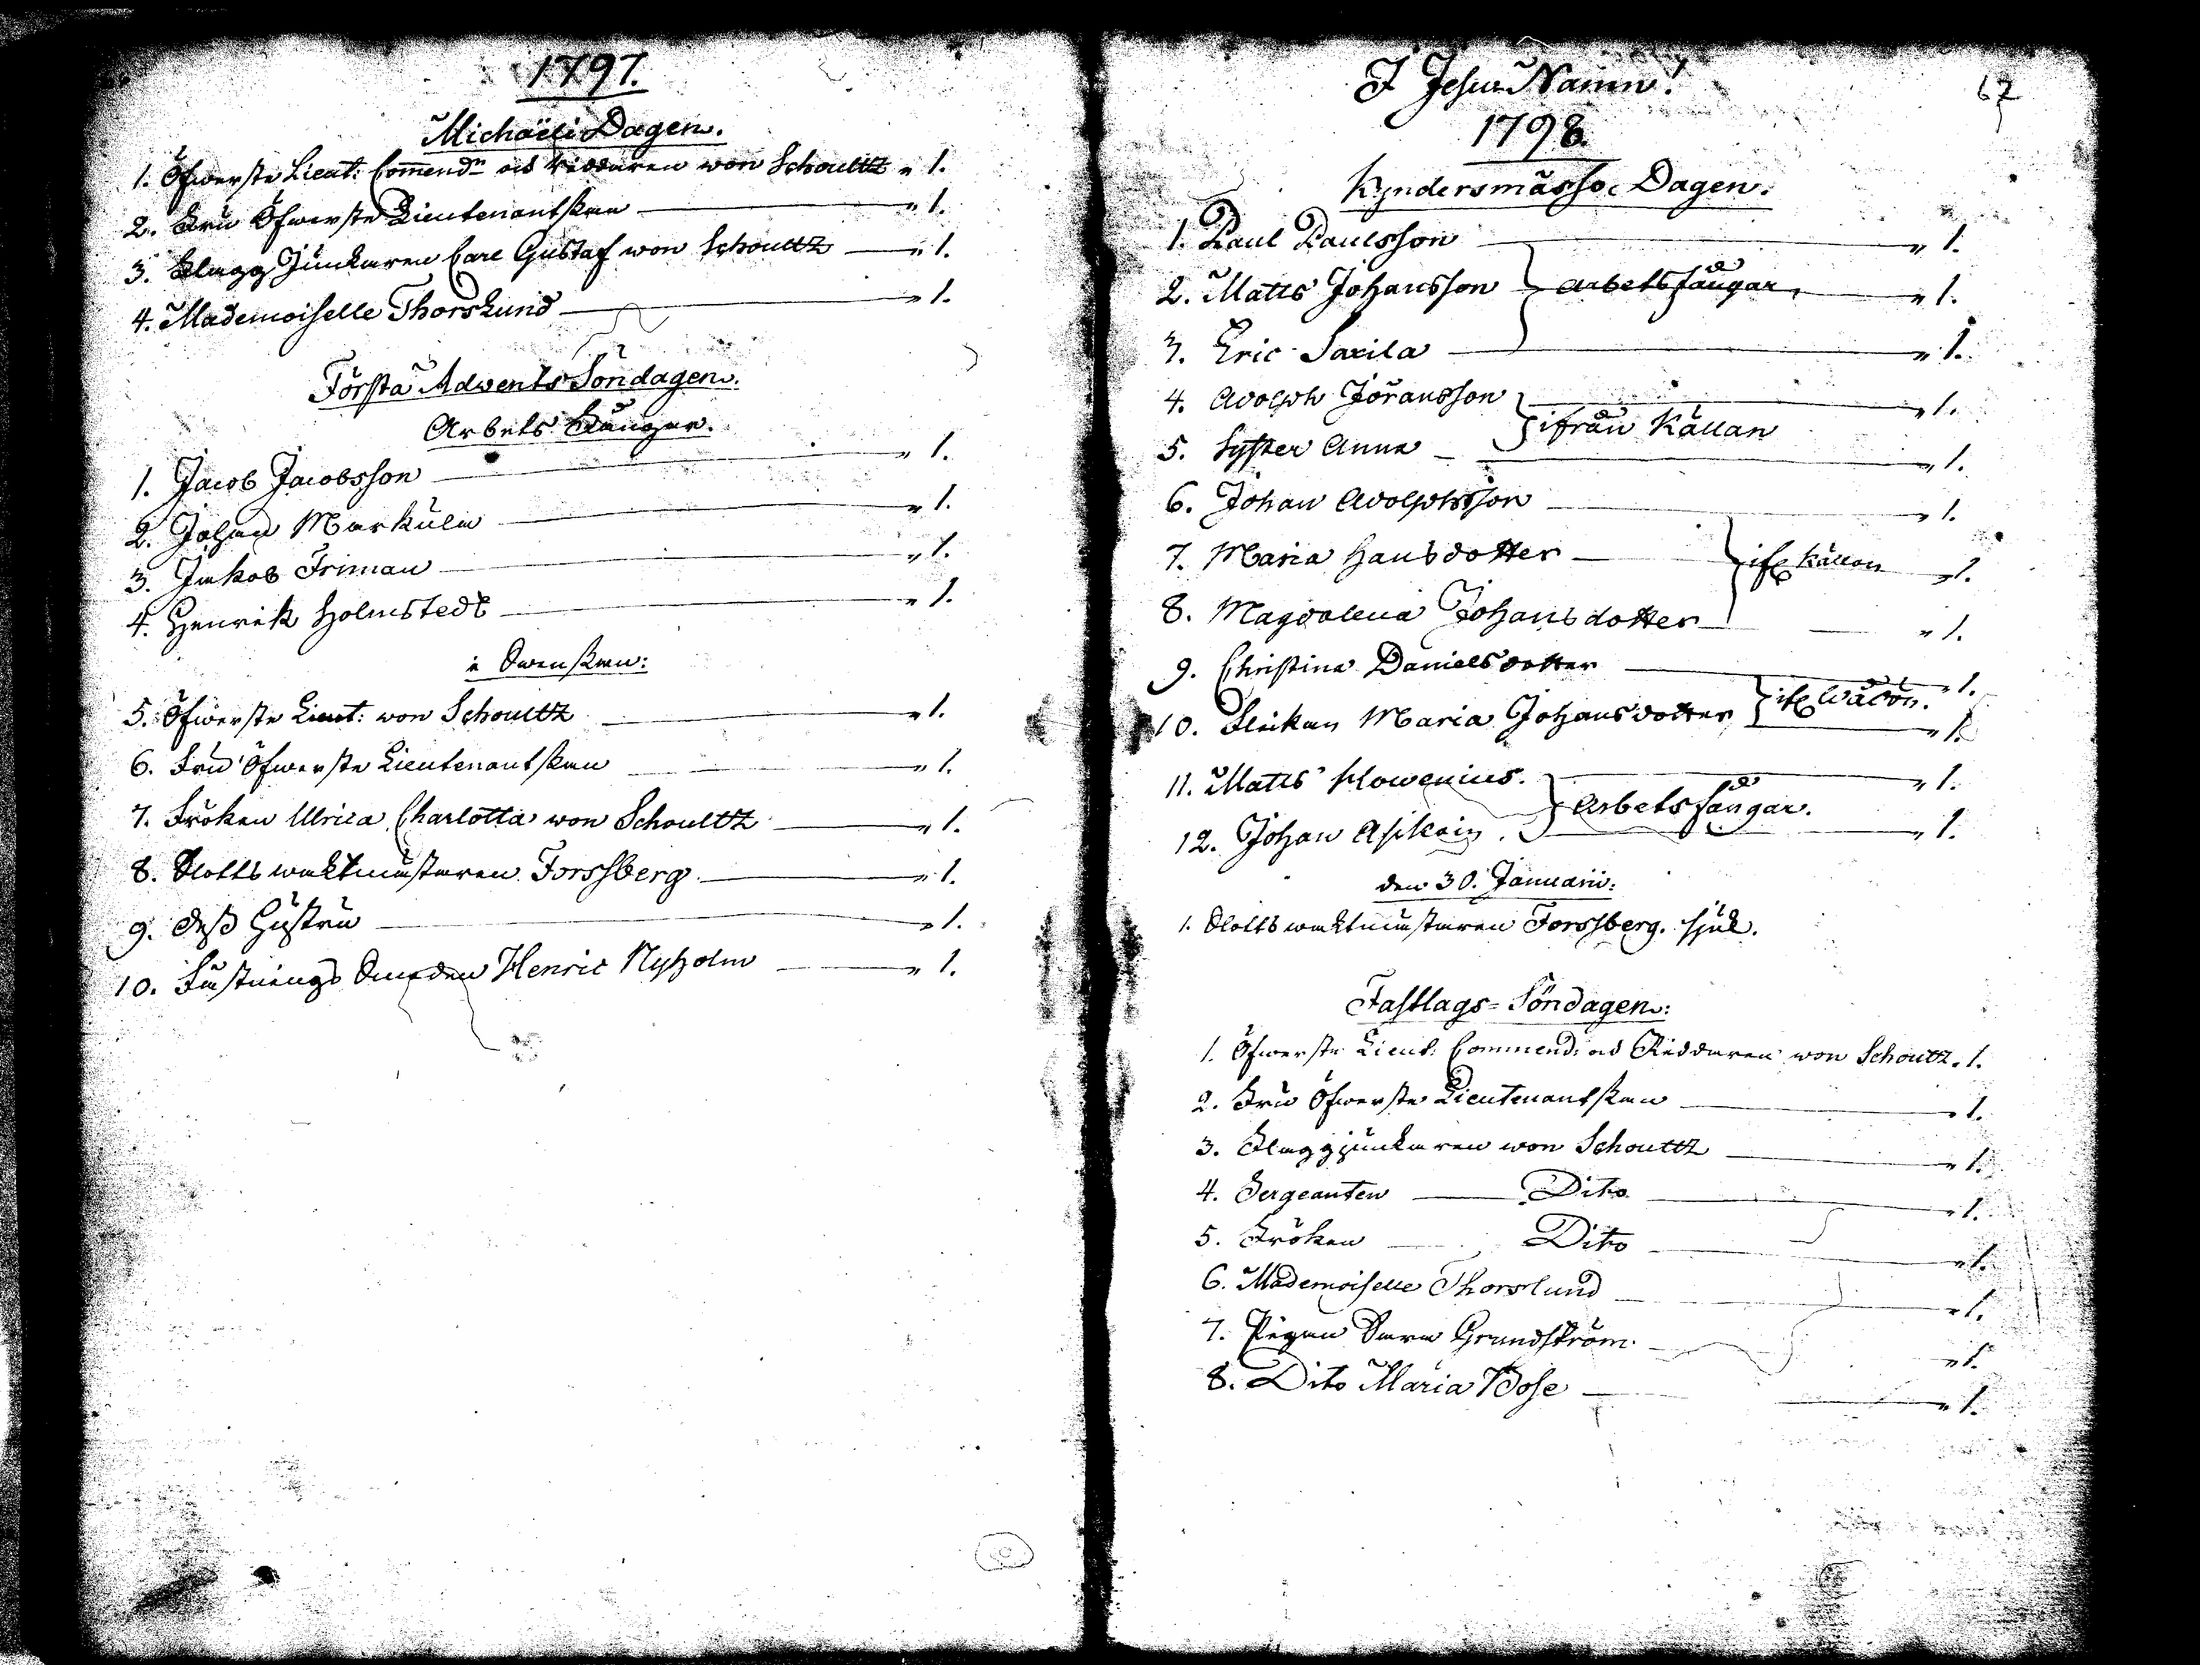 1797.
Michaëli Dagen.
1. Öfwerste Lieut: Commend:n och Riddaren von Schoultz " 1.
2. Fru Öfwerste Lieutenantskan " 1.
3. Flagg Junkaren Carl Gustaf von Schoultz " 1.
4. Mademoiselle Thorslund " 1.
Första Advents Söndagen.
Arbets Fångar.
1. Jacob Jacobsson " 1.
2. Johan Markula " 1.
3. Jakob Friman " 1.
4. Henrik Holmstedt " 1.
i Swenskan:
5. Öfwerste Lieut: von Schoultz " 1.
6. Fru Öfwerste Lieutenantskan " 1.
7. Fröken Ulrica Charlotta von Schoultz " 1.
8. Slotts waktmästaren Forssberg " 1.
9. dess Hustru " 1.
10. Fästnings Smeden Henric Nyholm " 1.
I Jesu Namn! 67
1798.
Kyndersmässo Dagen.
1. Paul Paulsson " 1.
2. Matts Johansson } Arbetsfångar " 1.
3. Eric Saxila " 1.
4. Adolph Jöransson " 1.
} ifrån Källan
5. Syster Anna " 1.
6. Johan Adolphsson " 1.
7. Maria Hansdotter } ifr Källan " 1.
8. Magdalena Johansdotter " 1.
9. Christina Danielsdotter " 1.
10. Flickan Maria Johansdotter } ifr " 1.
11. Matts Klowenius. " 1.
} Arbetsfångar.
12. Johan " 1.
den 30. Januarii:
1. Slotts waktmästaren Forssberg. sjuk.
Fastlags-Söndagen:
1. Öfwerste Lieut: Commend: och Riddaren von Schoultz " 1.
2. Fru Öfwerste Lieutenantskan " 1.
3. Flaggjunkaren von Schoultz " 1.
4. Sergeanten Dito " 1.
5. Fröken Dito " 1.
6. Mademoiselle Thorslund " 1.
7. Pigan Sara Grundström " 1.
8. Dito Maria Bose " 1.